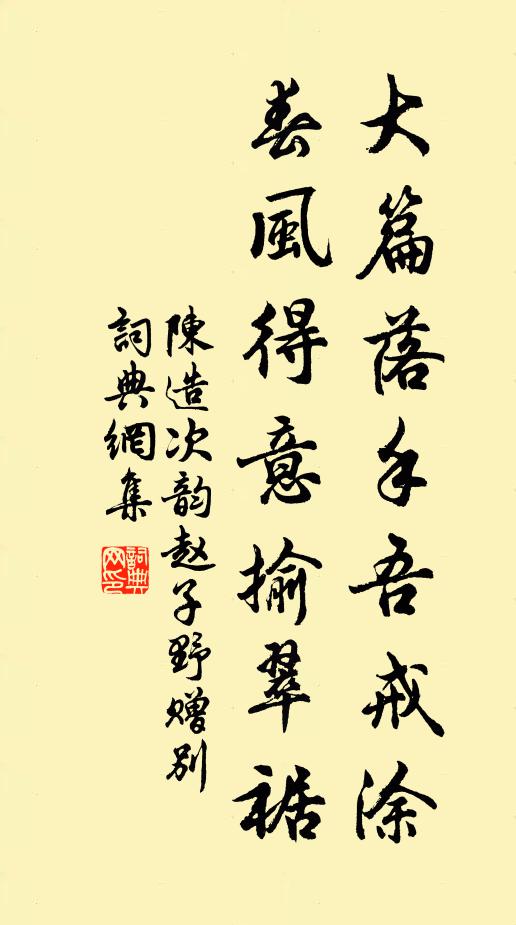 大篇落手吾戒涂
春風得意揄翠裾
陳造次韵赵子野赠别
詞典網集
詞典
网印